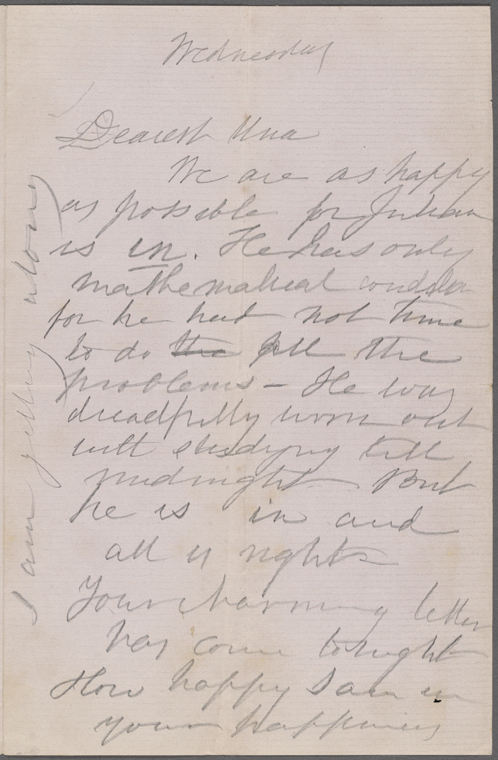 Wednesday
Dearest Una
We are as happy
as possible for Julian
is in. He has only
mathematical condition
for he had not time
to do the all the
problems - He was
dreadfully worn out
with studying till
midnight But
he is in and
all is right
Your charming letter
has come tonight
How happy I am in
your happiness
I am getting along